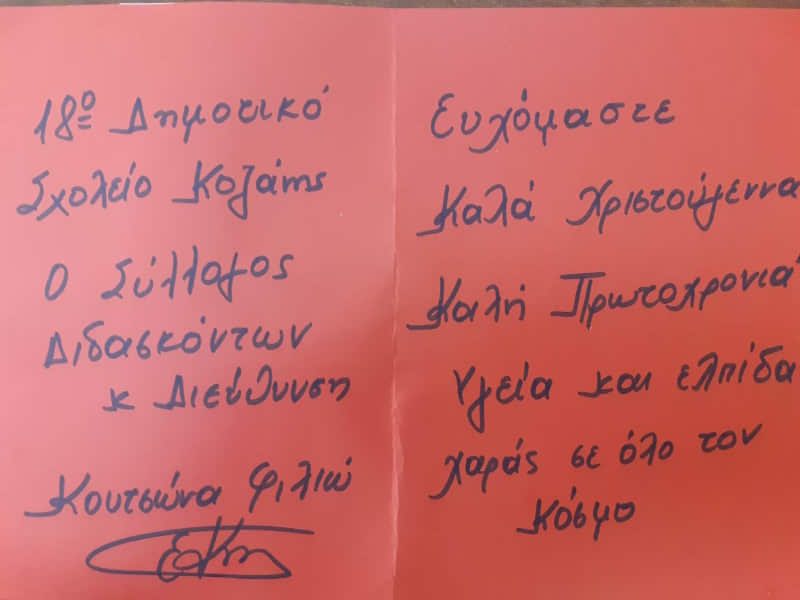 18º Δημοτικό
Σχολείο Κοζάνης
Ο Σύλλογος
Διδασκόντων
κ Διεύθυνση
Κουτσώνα Φιλιώ
Ευχόμαστε
Καλά Χριστούγεννα
Καλή Πρωτοχρονιά
Υγεία και ελπίδα
χαράς σε όλο τον
κόσμο